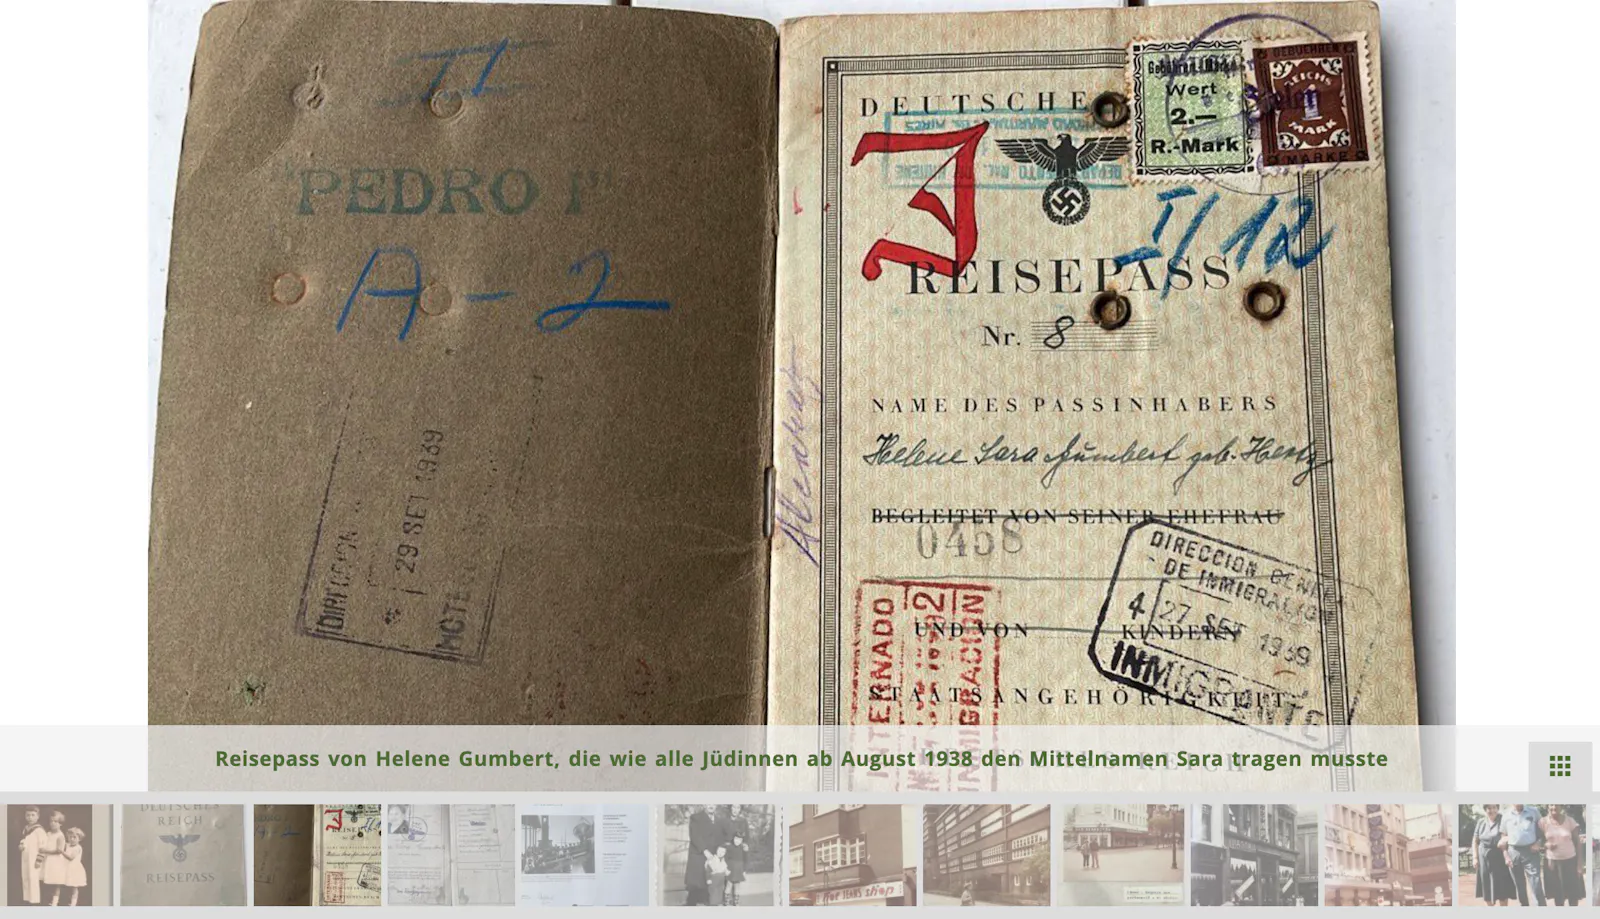 II
"PEDRO I"
A-2
29 SET 1939
DEUTSCHE
J
Gebühren-Marke
Wert
2.—
R.-Mark
GEBUEHREN
REICHS
1
MARK
MARKE
I/12
REISEPASS
Nr. 8
NAME DES PASSINHABERS
Helene Sara Gumbert geb. Hertz
BEGLEITET VON SEINER EHEFRAU
0458
UND VON KINDERN
STAATSANGEHÖRIGKEIT
INTERNADO
INMIGRACION
DIRECCION
DE INMIGRACION
4 27 SET 1939
INMIGRANTE
Reisepass von Helene Gumbert, die wie alle Jüdinnen ab August 1938 den Mittelnamen Sara tragen musste
DEUTSCHES
REICH
REISEPASS